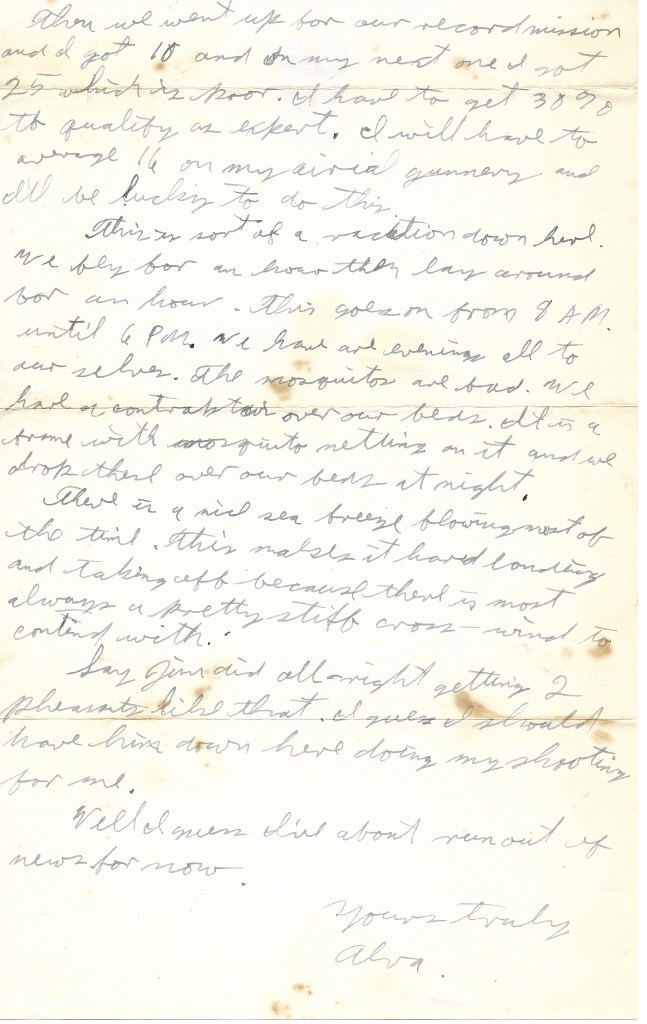 Then we went up for our record mission
and I got 10 and on my next one I got
25 which is poor. I have to get 30%
to qualify as expert. I will have to
average 16 on my airial gunnery and
I'll be lucky to do this.
This is sort of a vacation down here.
We fly for an hour then lay around
for an hour. This goes on from 8 A.M.
until 6 P.M. We have are evenings all to
our selves. The mosquitos are bad. We
have a contraption over our beds. It is a
frame with mosquito netting on it and we
drop these over our beds at night.
There is a nice sea breeze blowing most of
the time. This makes it hard landing
and taking off because there is most
always a pretty stiff cross-wind to
contend with.
Say Jim did all-right getting 2
pheasants like that. I guess I should
have him down here doing my shooting
for me.
Well I guess I've about run out of
news for now.
Yours truly
Alva.